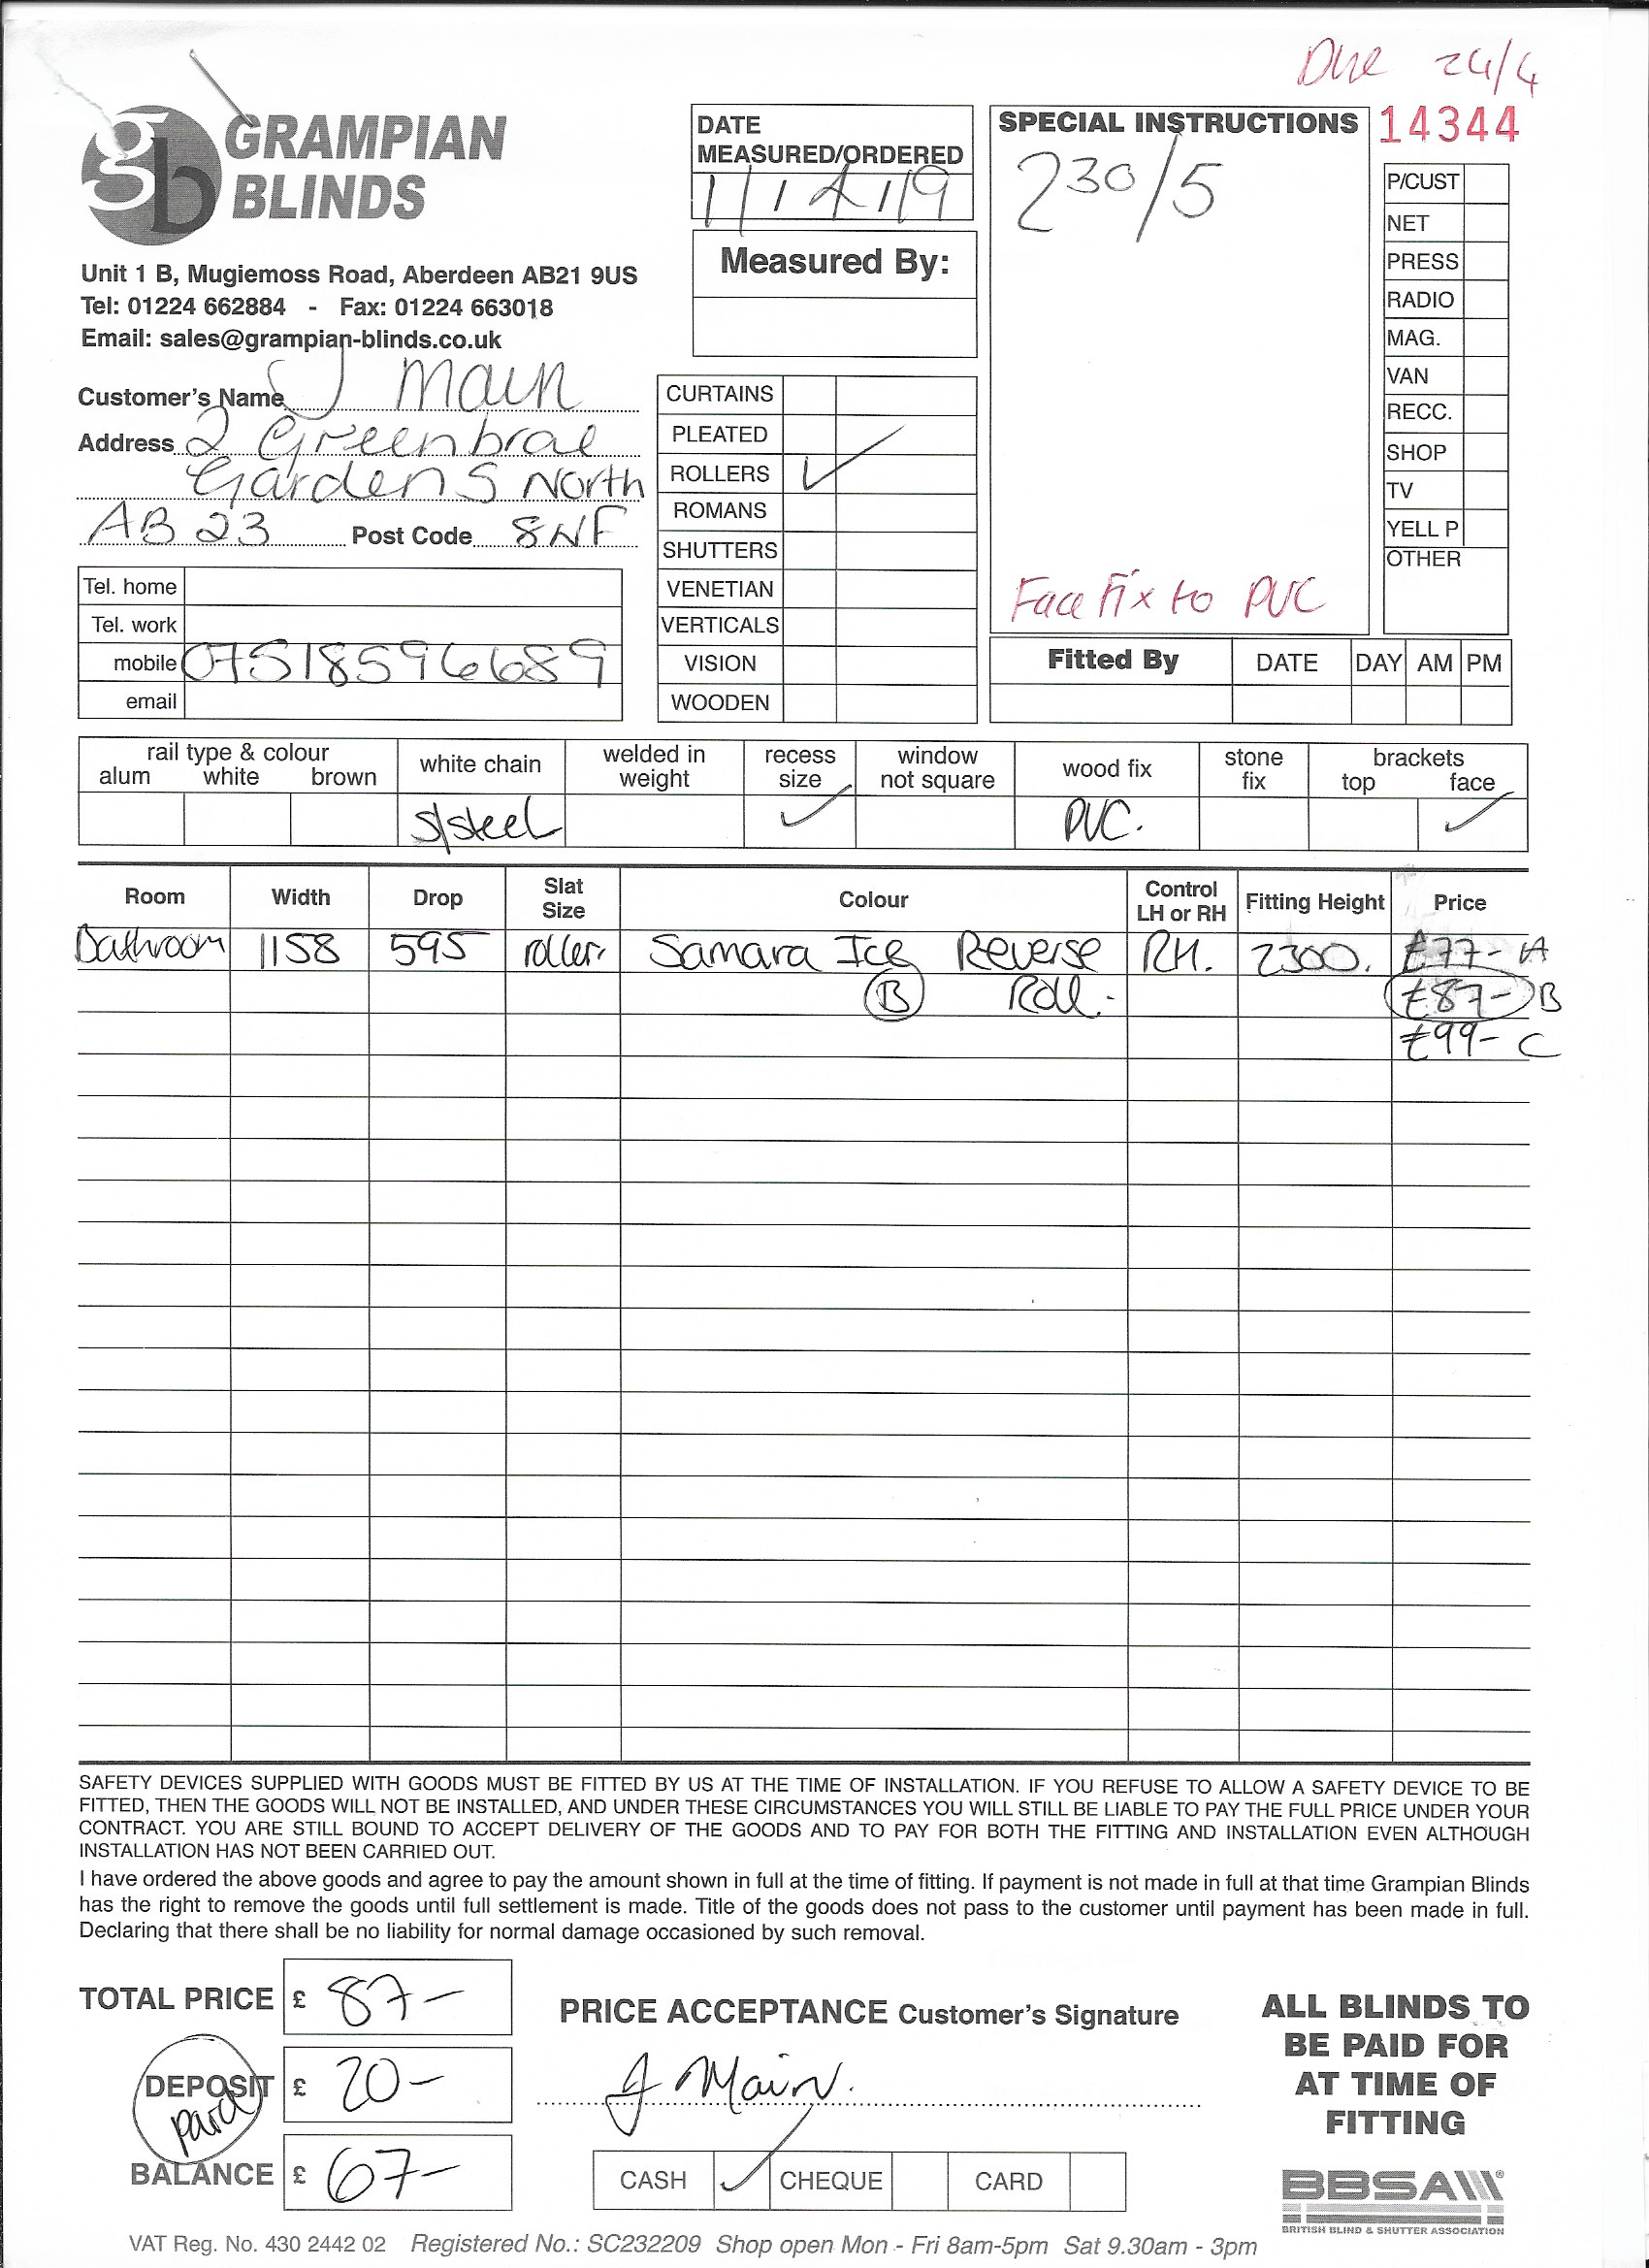 Due 24/4
GRAMPIAN
BLINDS
Unit 1 B, Mugiemoss Road, Aberdeen AB21 9US
Tel: 01224 662884 - Fax: 01224 663018
Email: sales@grampian-blinds.co.uk
DATE
MEASURED/ORDERED
1/4/19
Measured By:
SPECIAL INSTRUCTIONS
230/5
Face Fix to PVC
14344
P/CUST
NET
PRESS
RADIO
MAG.
VAN
RECC.
SHOP
TV
YELL P
OTHER
Customer's Name J Main
Address 2 Greenbrae
Gardens North
AB23 Post Code 8NF
Tel. home
Tel. work
mobile 07518596689
email
CURTAINS
PLEATED
ROLLERS ✓
ROMANS
SHUTTERS
VENETIAN
VERTICALS
VISION
WOODEN
Fitted By DATE DAY AM PM
rail type & colour
alum white brown
white chain
S/steel
welded in
weight
recess
size
✓
window
not square
wood fix
PVC.
stone
fix
brackets
top face
✓
Room Width Drop Slat Size Colour Control LH or RH Fitting Height Price
Bathroom 1158 595 roller Samara Ice Reverse RH. 2300. £77- A
B Roll. £87- B
£99- C
SAFETY DEVICES SUPPLIED WITH GOODS MUST BE FITTED BY US AT THE TIME OF INSTALLATION. IF YOU REFUSE TO ALLOW A SAFETY DEVICE TO BE
FITTED, THEN THE GOODS WILL NOT BE INSTALLED, AND UNDER THESE CIRCUMSTANCES YOU WILL STILL BE LIABLE TO PAY THE FULL PRICE UNDER YOUR
CONTRACT. YOU ARE STILL BOUND TO ACCEPT DELIVERY OF THE GOODS AND TO PAY FOR BOTH THE FITTING AND INSTALLATION EVEN ALTHOUGH
INSTALLATION HAS NOT BEEN CARRIED OUT.
I have ordered the above goods and agree to pay the amount shown in full at the time of fitting. If payment is not made in full at that time Grampian Blinds
has the right to remove the goods until full settlement is made. Title of the goods does not pass to the customer until payment has been made in full.
Declaring that there shall be no liability for normal damage occasioned by such removal.
TOTAL PRICE £ 87-
DEPOSIT £ 20-
paid
BALANCE £ 67-
PRICE ACCEPTANCE Customer's Signature
J Main.
CASH ✓ CHEQUE CARD
ALL BLINDS TO
BE PAID FOR
AT TIME OF
FITTING
BBSA
BRITISH BLIND & SHUTTER ASSOCIATION
VAT Reg. No. 430 2442 02 Registered No.: SC232209 Shop open Mon - Fri 8am-5pm Sat 9.30am - 3pm